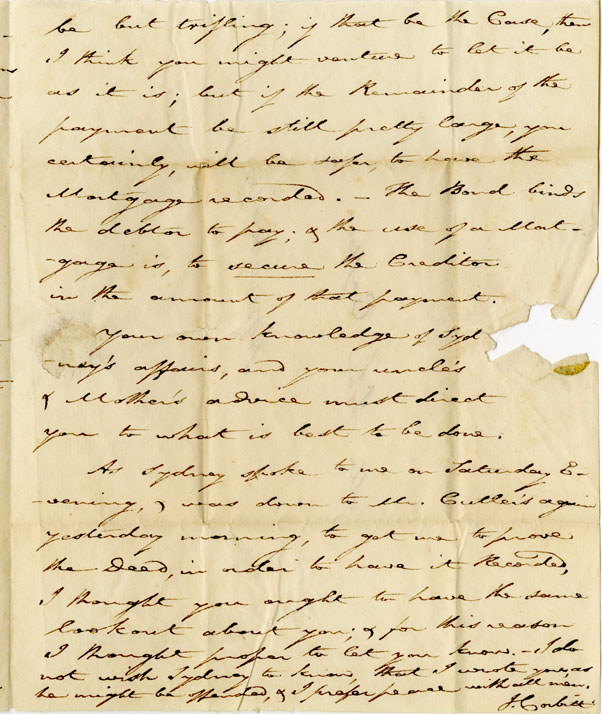 be but trifling; if that be the Case, then
I think you might venture to let it be
as it is; but if the Remainder of the
payment be still pretty large, you
certainly, will be safer, to have the
Mortgage recorded. - the Bond binds
the debtor to pay; & the use of a Mort-
-gage is, to secure the Creditor
in the amount of that payment.
Your own knowledge of Syd
-ney's affairs, and your uncle's
& Mother's advice must direct
you to what is best to be done.
As Sydney spoke to me on Saturday E-
-vening, & was down to Mr. Cutler's again
yesterday morning, to get me to prove
the Deed, in order to have it Recorded,
I thought you ought to have the same
lookout about you; & for this reason
I thought proper to let you know. - I do
not wish Sydney to know, that I wrote you, as
he might be offended, & I prefer peace with all men.
J. Corbitt